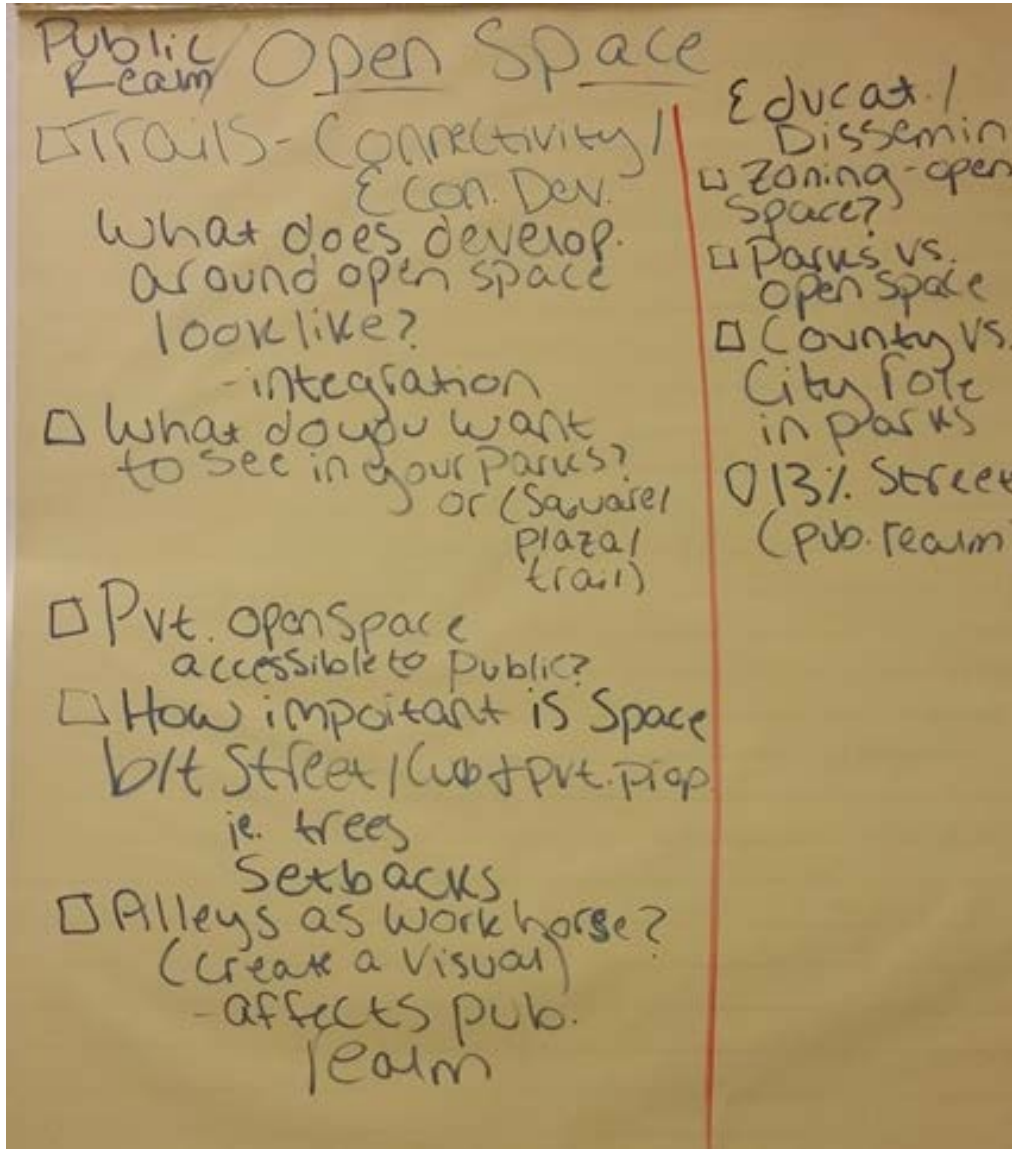 Public
Realm/ Open Space
□ Trails - Connectivity/
Econ. Dev.
What does develop.
around open space
look like?
- integration
□ What do you want
to see in your parks?
or (Square/
plaza/
trail)
□ Pvt. open space
accessible to public?
□ How important is Space
b/t Street / Curb & pvt. prop.
ie. trees
Setbacks
□ Alleys as work horse?
(create a visual)
- affects pub.
realm
Educat. /
Dissemin
□ Zoning - open
space?
□ Parks vs.
open space
□ County vs.
City role
in parks
□ 13% Street
(pub. realm